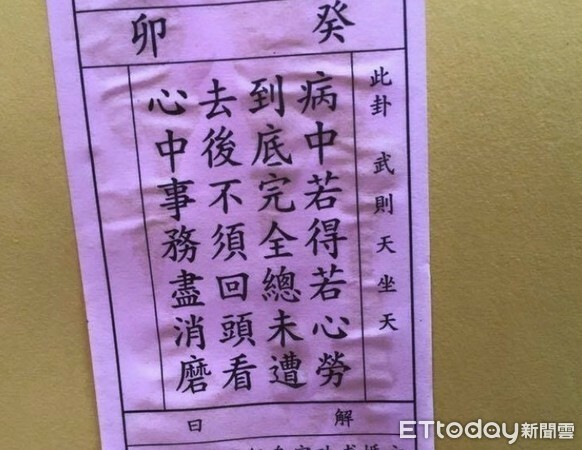 癸卯
此卦 武則天坐天
病中若得若心勞
到底完全總未遭
去後不須回頭看
心中事務盡消磨
解曰
ETtoday新聞雲